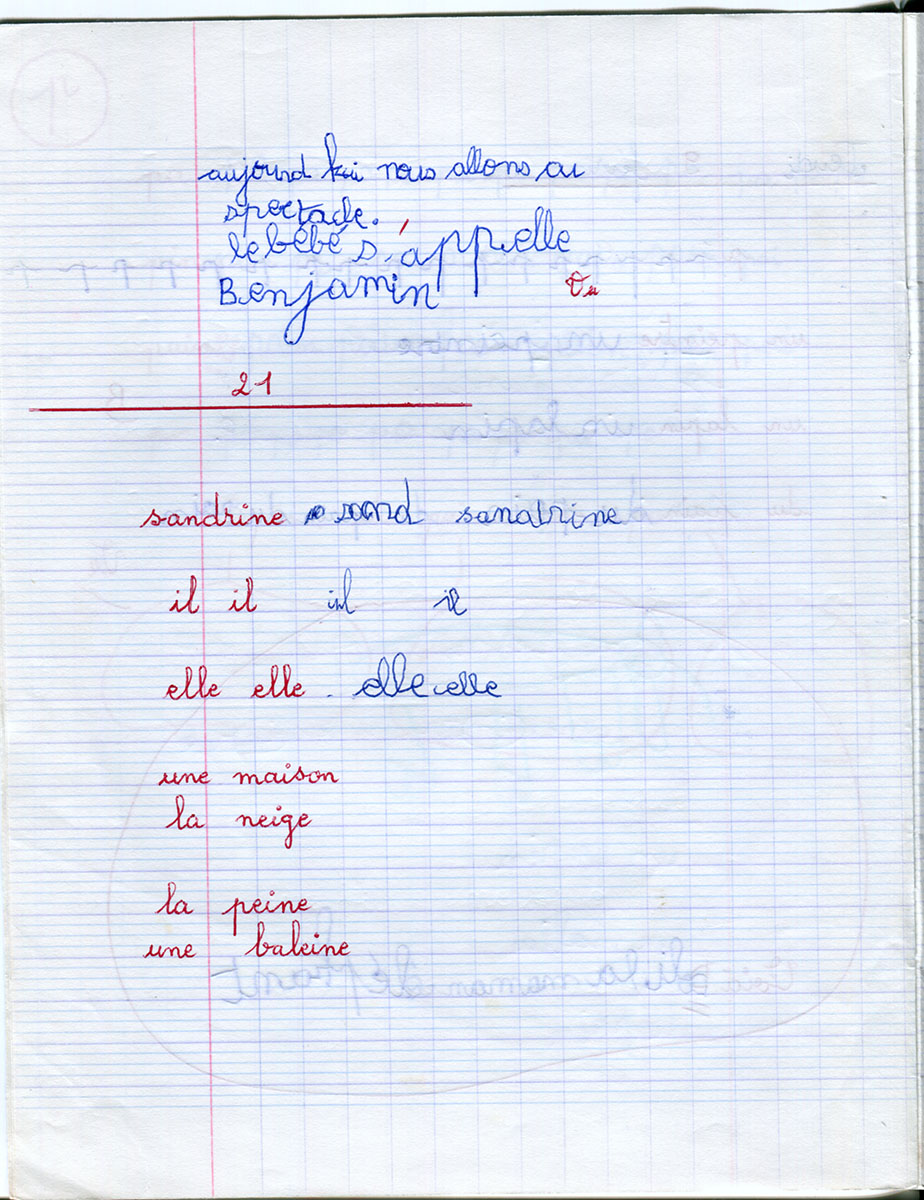 aujourd hui nous allons au
spectacle.
le bébé s'appelle
Benjamin Vu
21
sandrine sand sanatrine
il il il il
elle elle elle elle
une maison
la neige
la peine
une baleine